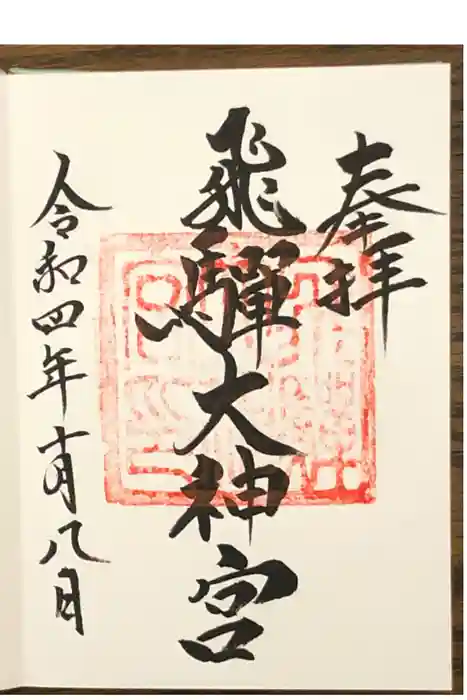 奉拝
飛驒大神宮
令和四年十月八日